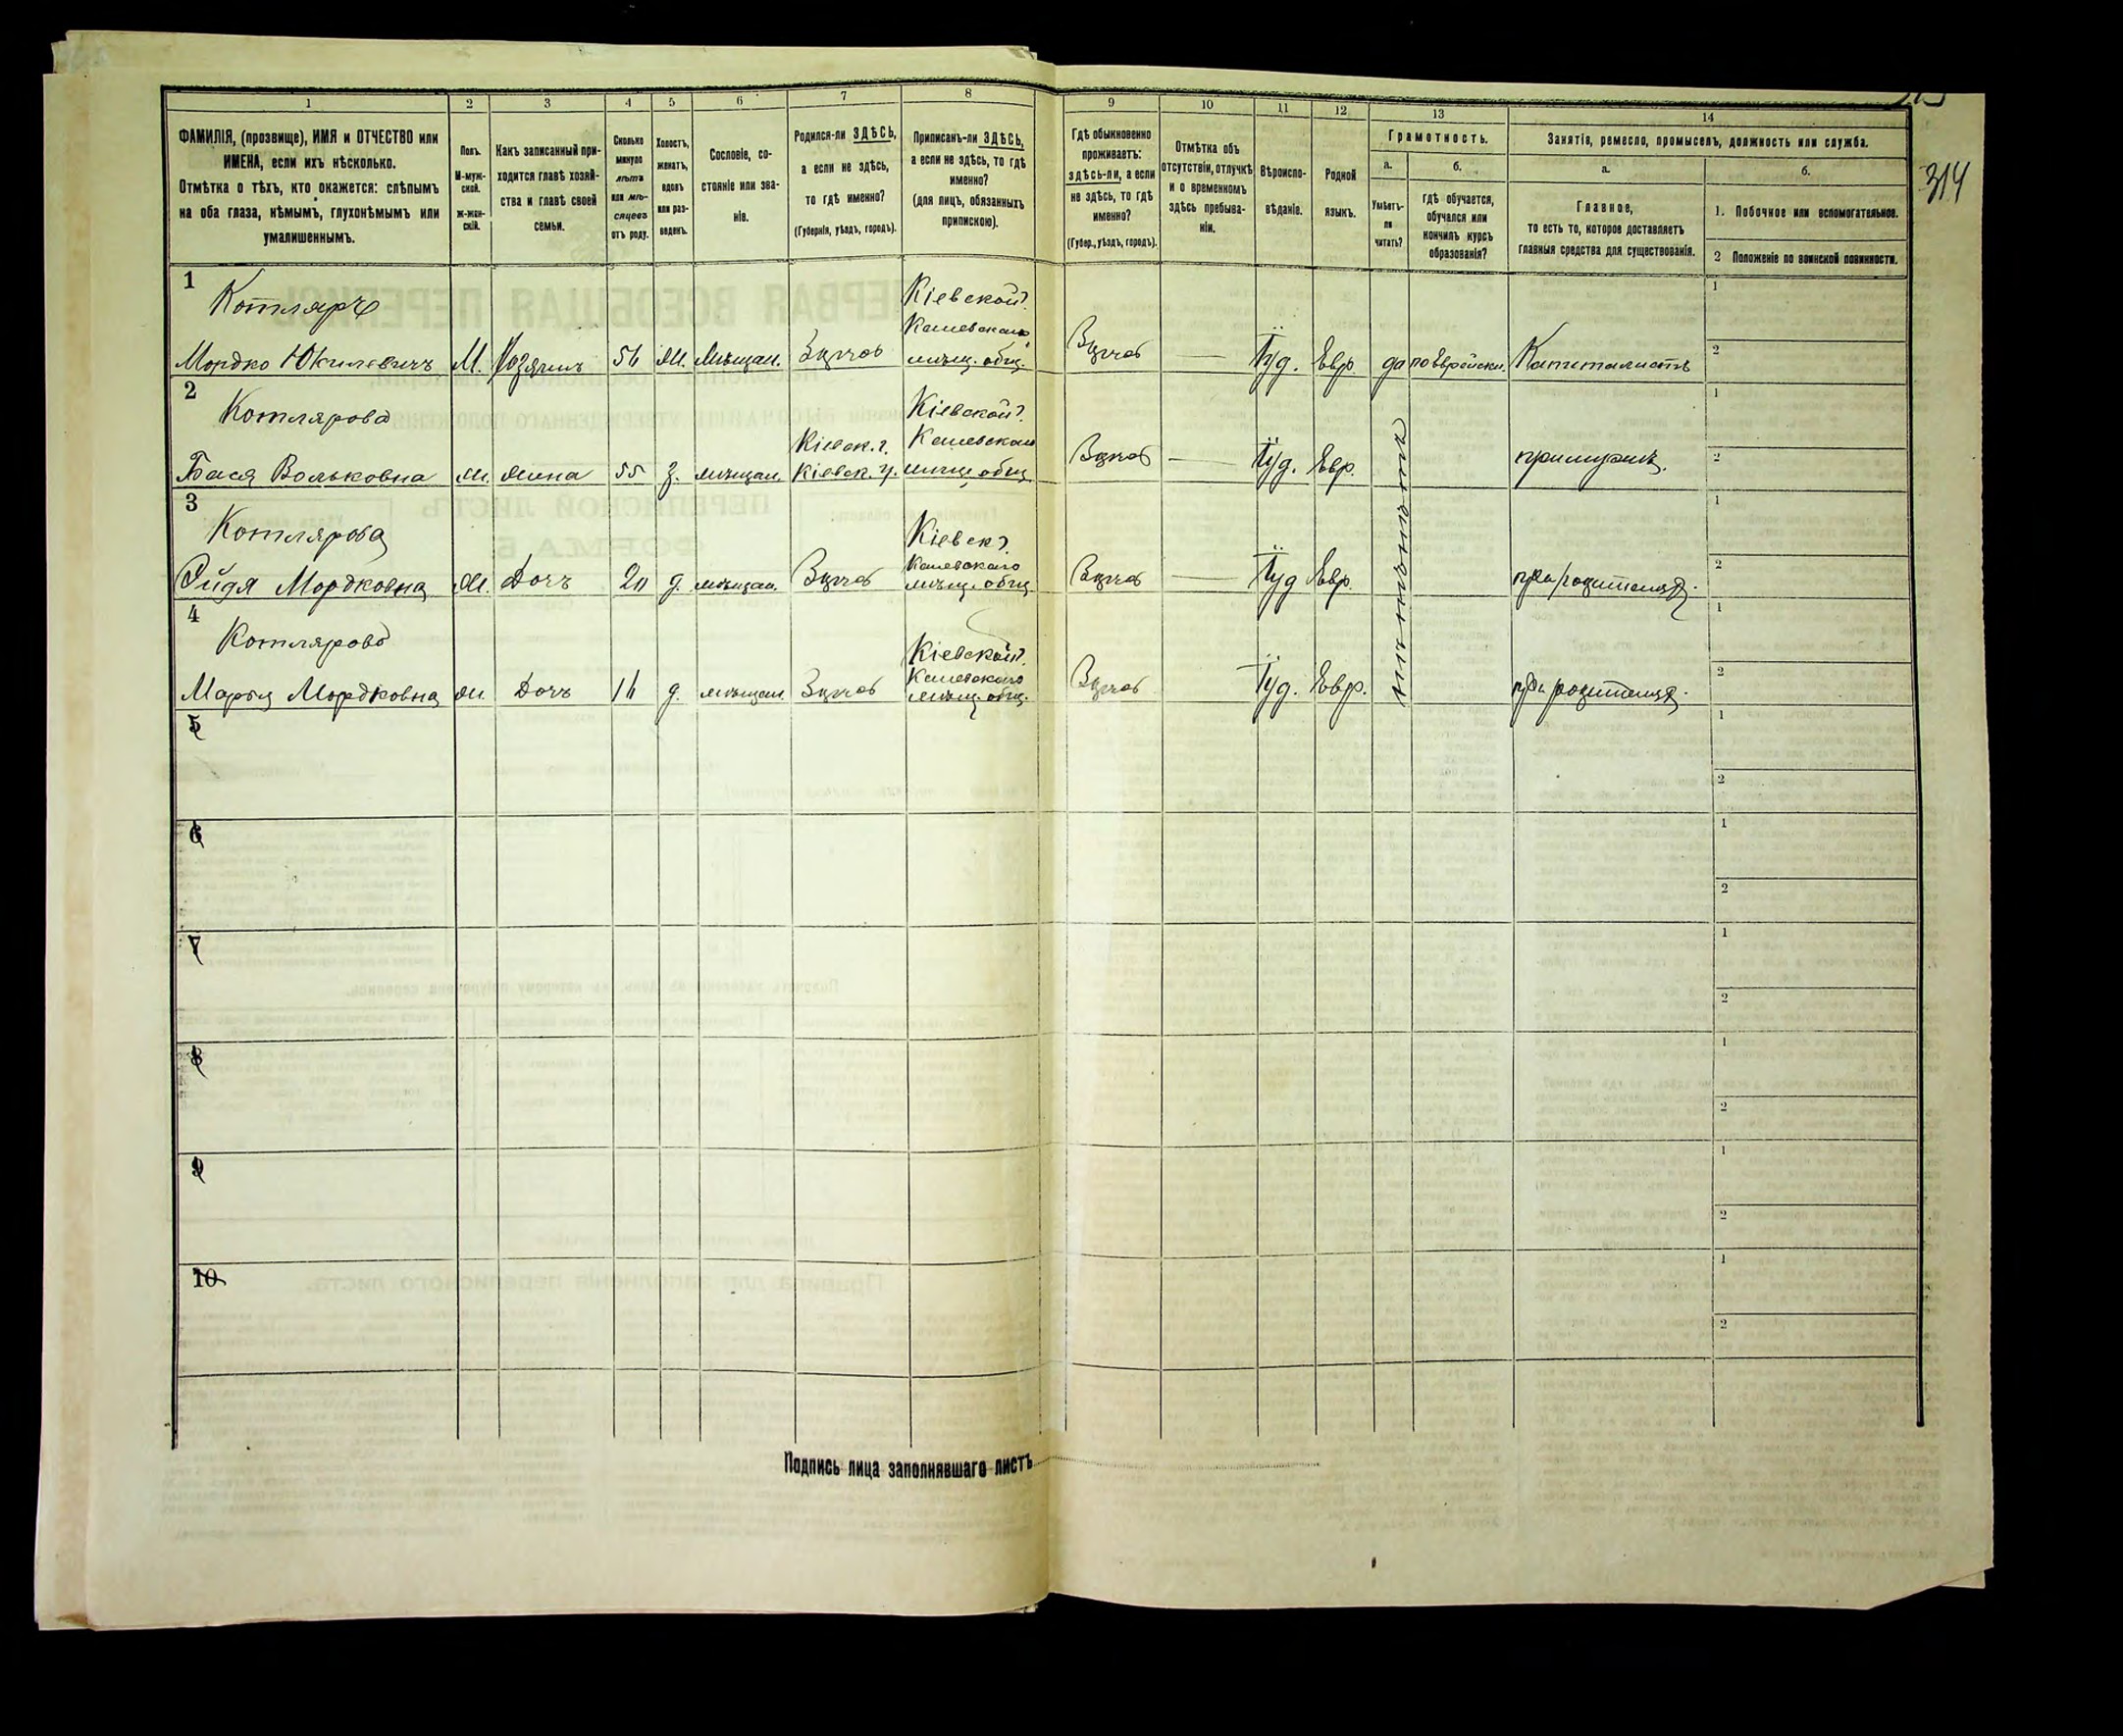 314
1 2 3 4 5 6 7 8 9 10 11 12 13 14
ФАМИЛІЯ, (прозвище), ИМЯ и ОТЧЕСТВО или
ИМЕНА, если ихъ нѣсколько.
Отмѣтка о тѣхъ, кто окажется: слѣпымъ
на оба глаза, нѣмымъ, глухонѣмымъ или
умалишеннымъ.
Полъ.
М-муж-
ской.
Ж-жен-
скій.
Какъ записанный при-
ходится главѣ хозяй-
ства и главѣ своей
семьи.
Сколько
минуло
лѣтъ
или мѣ-
сяцевъ
отъ роду.
Холостъ,
женатъ,
вдовъ
или раз-
веденъ.
Сословіе, со-
стояніе или зва-
ніе.
Родился-ли ЗДѢСЬ,
а если не здѣсь,
то гдѣ именно?
(Губернія, уѣздъ, городъ).
Приписанъ-ли ЗДѢСЬ,
а если не здѣсь, то гдѣ
именно?
(для лицъ, обязанныхъ
припискою).
Гдѣ обыкновенно
проживаетъ:
здѣсь-ли, а если
не здѣсь, то гдѣ
именно?
(Губер., уѣздъ, городъ).
Отмѣтка объ
отсутствіи, отлучкѣ
и о временномъ
здѣсь пребыва-
ніи.
Вѣроиспо-
вѣданіе.
Родной
языкъ.
Грамотность.
а.
Умѣетъ-
ли
читать?
б.
Гдѣ обучается,
обучался или
кончилъ курсъ
образованія?
Занятія, ремесло, промыселъ, должность или служба.
а.
Главное,
то есть то, которое доставляетъ
главныя средства для существованія.
б.
1. Побочное или вспомогательное.
2 Положеніе по воинской повинности.
1
Котляръ
Мордко
М. Хозяинъ мѣщан. Здѣсь
Кіевской г.
Каневскаго
мѣщ. общ.
Здѣсь — Іуд. Евр. да по Еврейски. Капиталистъ
1
2
2
Котлярова
Бася Вольковна
ж. жена 55 з. мѣщан.
Кіевск. г.
Кіевск. у.
Кіевской г.
Каневскаго
мѣщ. общ.
Здѣсь — Іуд. Евр.
при мужѣ.
1
2
3
Котлярова
Мордковна
ж. Дочь д. мѣщан. Здѣсь
Кіевск г.
Каневскаго
мѣщ. общ.
Здѣсь — Іуд Евр.
при родителяхъ.
1
2
4
Котлярова
Марья Мордковна
ж. Дочь д. мѣщан. Здѣсь
Кіевской г.
Каневскаго
мѣщ. общ.
Здѣсь Іуд. Евр.
при родителяхъ.
1
2
5
1
2
6
1
2
7
1
2
8
1
2
9
1
2
10
1
2
Подпись лица заполнявшаго листъ